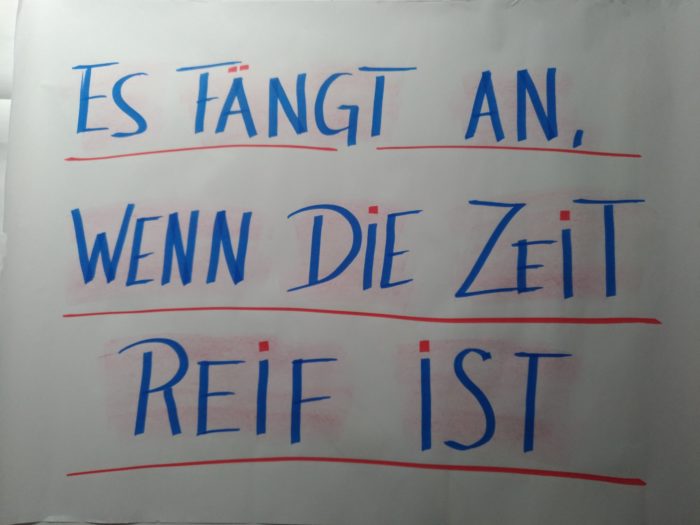 ES FÄNGT AN,
WENN DiE ZEiT
REiF iST